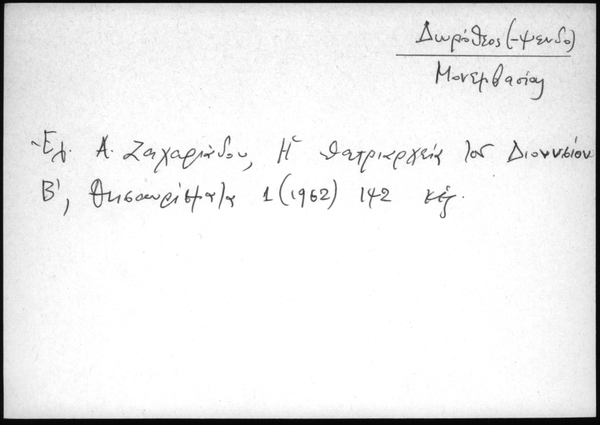 Δωρόθεος (-ψευδο)
Μονεμβασίας
Ἐλ. Α. Ζαχαριάδου, Ἡ πατριαρχεία τοῦ Διονυσίου
Β', Θησαυρίσματα 1 (1962) 142 κἑξ.